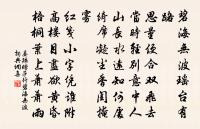 碧海無波瑤臺有
路
思量便合雙飛去
當時輕別意中人
山長水遠知何處
綺席凝塵香閨掩
霧
紅箋小字憑誰附
高樓目盡欲黃昏
梧桐葉上蕭蕭雨
晏殊踏莎行碧海無波